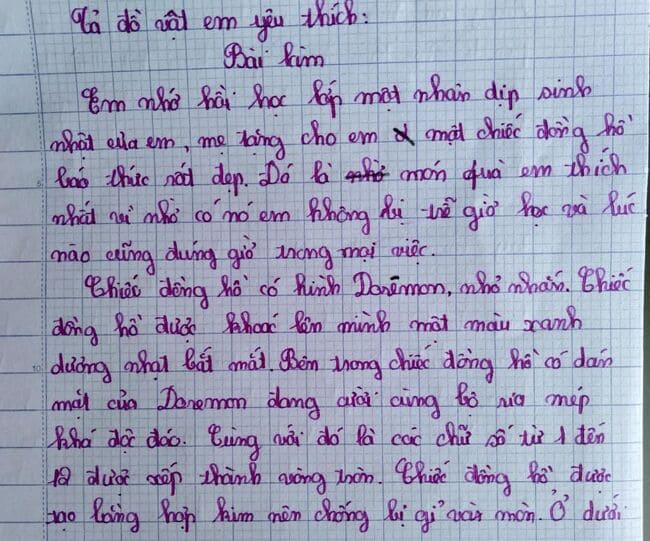 Tả đồ vật em yêu thích:
Bài làm
Em nhớ hồi học lớp một nhân dịp sinh
nhật của em, mẹ tăng cho em một chiếc đồng hồ
báo thức rất đẹp. Đó là nhờ món quà em thích
nhất vì nhờ có nó em không bị trễ giờ học và lúc
nào cũng đúng giờ trong mọi việc.
Chiếc đồng hồ có hình Doremon, nhỏ nhắn. Chiếc
đồng hồ được khoác lên mình một màu xanh
dương nhạt bắt mắt. Bên trong chiếc đồng hồ có dán
mặt của Doremon đang cười cùng bộ ria mép
khá độc đáo. Cùng với đó là các chữ số từ 1 đến
12 được xếp thành vòng tròn. Chiếc đồng hồ được
tạo bằng hợp kim nên chống bị gỉ và mòn. Ở dưới